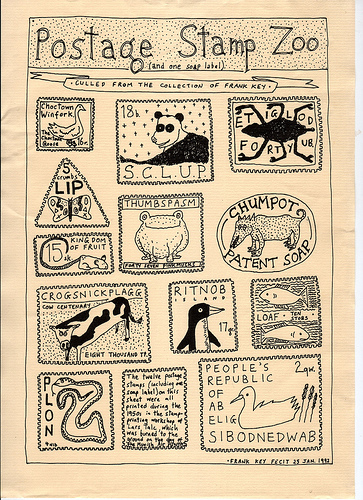 Postage Stamp Zoo
(and one soap label)
· CULLED FROM THE COLLECTION OF FRANK KEY ·
Choctown
Winfork
The
Choctown
Goose
18h.
S.C.L.U.P.
ET IGLOD
FORTY UB.
5
crumbs
LIP
THUMBSPASM
FORTY SEVEN
CHUMPOT
PATENT SOAP
15
KINGDOM
OF FRUIT
CROGSNICKPLAGG
COW CENTENARY
EIGHT THOUSAND PT.
RITNOB
ISLAND
17
LOAF
TEN
PLON
The twelve postage
stamps (including one
soap label) on this
sheet were all
printed during the
1950s in the stamp
printing workshop of
Lars Talc, which
was burned to the
ground on the day of
PEOPLE'S
REPUBLIC
OF
AB
ELIG
SIBODNEDWAB
· FRANK KEY FECIT 25 JAN. 1992